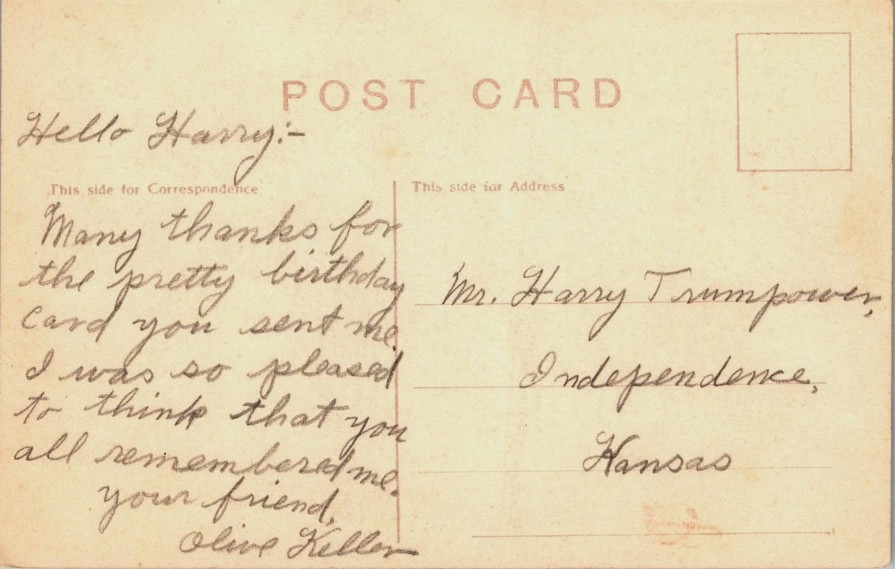 POST CARD
Hello Harry:-
This side for Correspondence
Many thanks for
the pretty birthday
card you sent me.
I was so pleased
to think that you
all remembered me.
your friend,
Olive Keller
This side for Address
Mr. Harry Trumpower,
Independence,
Kansas